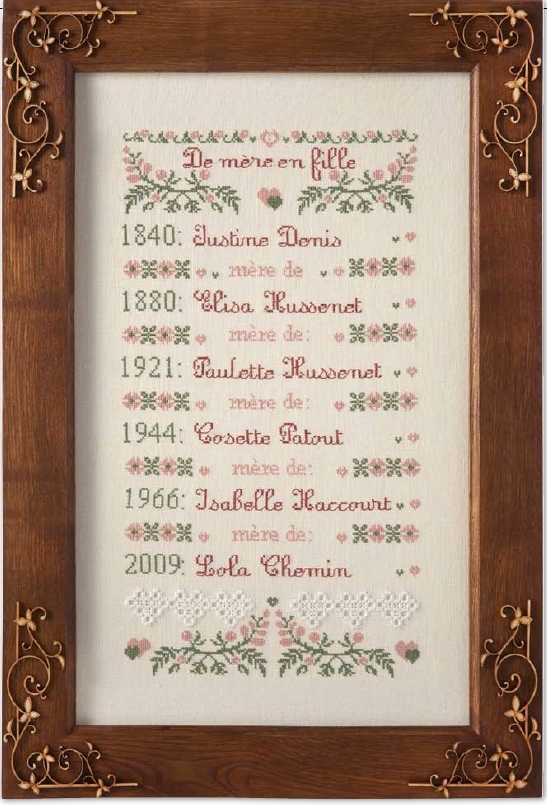 De mère en fille
1840: Justine Denis
mère de
1880: Elisa Hussenet
mère de:
1921: Paulette Hussenet
mère de:
1944: Cosette Patout
mère de:
1966: Isabelle Haccourt
mère de:
2009: Lola Chemin